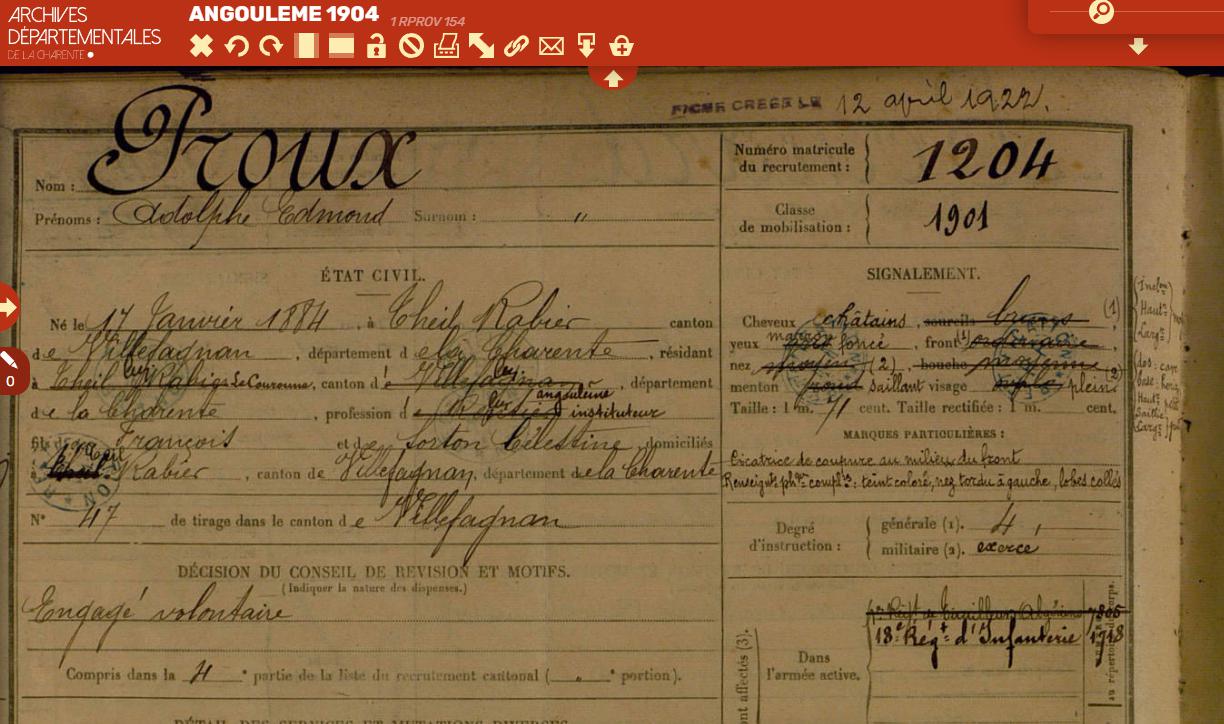 ARCHIVES
DÉPARTEMENTALES
DE LA CHARENTE
ANGOULEME 1904 1 RPROV 154
0
FICHE CREEE LE 12 avril 1922.
Nom : Proux
Prénoms : Adolphe Edmond Surnom : "
Numéro matricule du recrutement : 1204
Classe de mobilisation : 1901
ÉTAT CIVIL.
Né le 17 Janvier 1884, à Theil Rabier canton
de Villefagnan, département de la Charente, résidant
à Theil Rabier La Couronne, canton d Villefagnan, département
angoulême
de la Charente, profession d instituteur
fils de François et de Sorton Célestine domiciliés
à Theil Rabier, canton de Villefagnan, département de la Charente
N° 47 de tirage dans le canton de Villefagnan
DÉCISION DU CONSEIL DE REVISION ET MOTIFS.
(Indiquer la nature des dispenses.)
Engagé volontaire
Compris dans la 4e partie de la liste du recrutement cantonal ( " e portion).
DÉTAIL DES SERVICES ET MUTATIONS DIVERSES
SIGNALEMENT.
Cheveux châtains, sourcils bruns (1)
yeux foncé, front (1) ordinaire
nez moyen (2), bouche moyenne (2)
menton rond saillant visage plein
Taille : 1 m. 71 cent. Taille rectifiée : 1 m. cent.
MARQUES PARTICULIÈRES :
Cicatrice de coupure au milieu du front
Renseignts phys. compl.: teint coloré, nez tordu à gauche, lobes collés
Degré d'instruction : générale (1). 4,
militaire (2). exercé
1er Régt de Tirailleurs Algériens 7805
18e Régt d'Infanterie 1718
Dans l'armée active.
nt affectés (3).
au répertoire du corps.